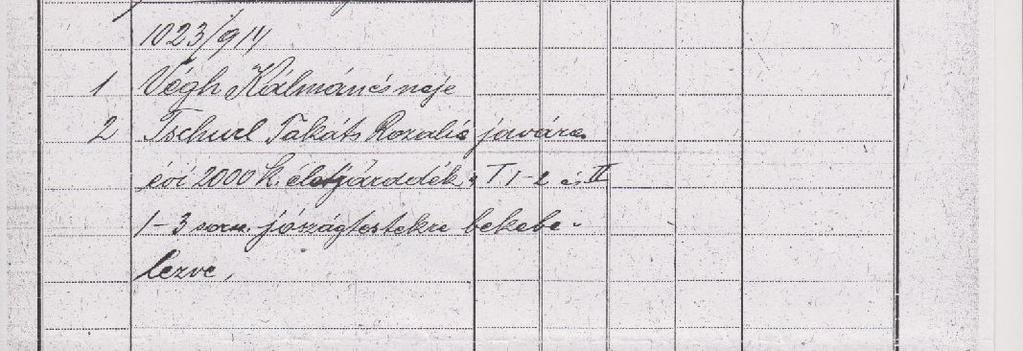 1023/914
1 Végh Kálmán és neje
2 Tschurl Takáts Rozalia javára
évi 2000 K. életjáradék a I 1-2 és II
1-3 sorsz. jószágtestekre bekebe-
lezve,